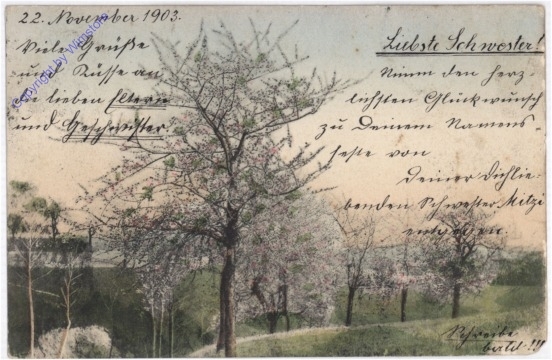 22. November 1903.
Viele Grüße
und Küsse an
die lieben Eltern
und Geschwister.
Liebste Schwester!
Nimm den herz-
lichsten Glückwunsch
zu Deinem Namens-
feste von
Deiner Dichlie-
benden Schwester Mitzi
entgegen.
Schreibe
bald!!!
Copyright by Wimstore